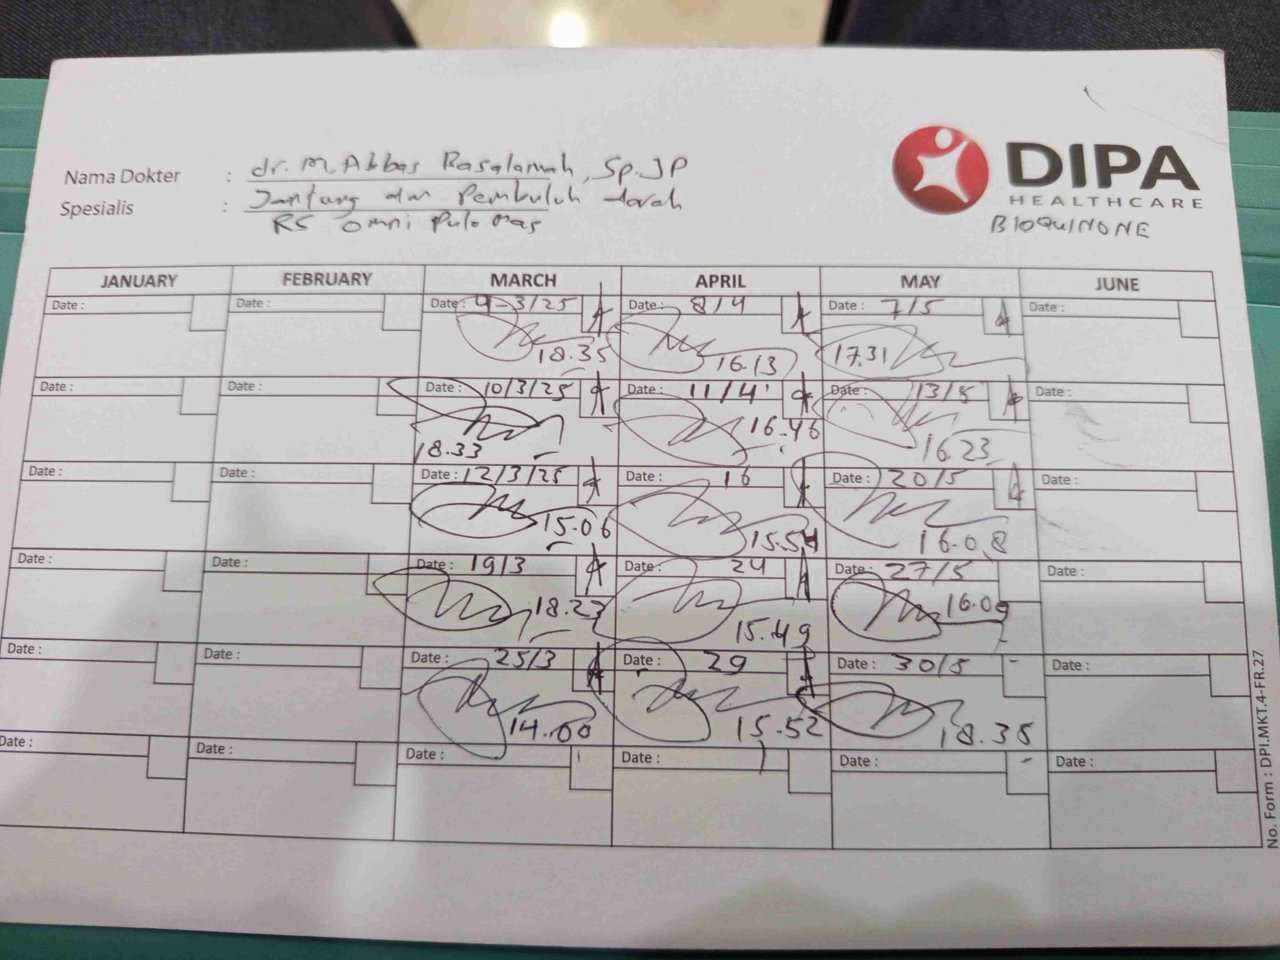 DIPA
HEALTHCARE
BIOQUINONE
Nama Dokter : dr. M. Abbas Basalamah, Sp.JP
Spesialis : Jantung dan Pembuluh darah
RS Omni Pulo Mas
JANUARY FEBRUARY MARCH APRIL MAY JUNE
Date : Date : Date : 4-3/25 Date : 8/4 Date : 7/5 Date :
18.35 16.13 17.31
Date : Date : Date : 10/3/25 Date : 11/4 Date : 13/5 Date :
18.33 16.46 16.23
Date : Date : Date : 12/3/25 Date : 16 Date : 20/5 Date :
15.06 15.54 16.08
Date : Date : Date : 19/3 Date : 24 Date : 27/5 Date :
18.23 15.49 16.09
Date : Date : Date : 25/3 Date : 29 Date : 30/5 Date :
14.00 15.52 18.35
Date : Date : Date : Date : Date : Date :
No. Form : DPI.MKT.4-FR.27